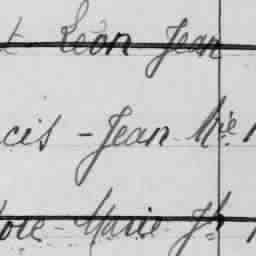 t Léon Jean
cis - Jean Mie
oire - Marie Jh